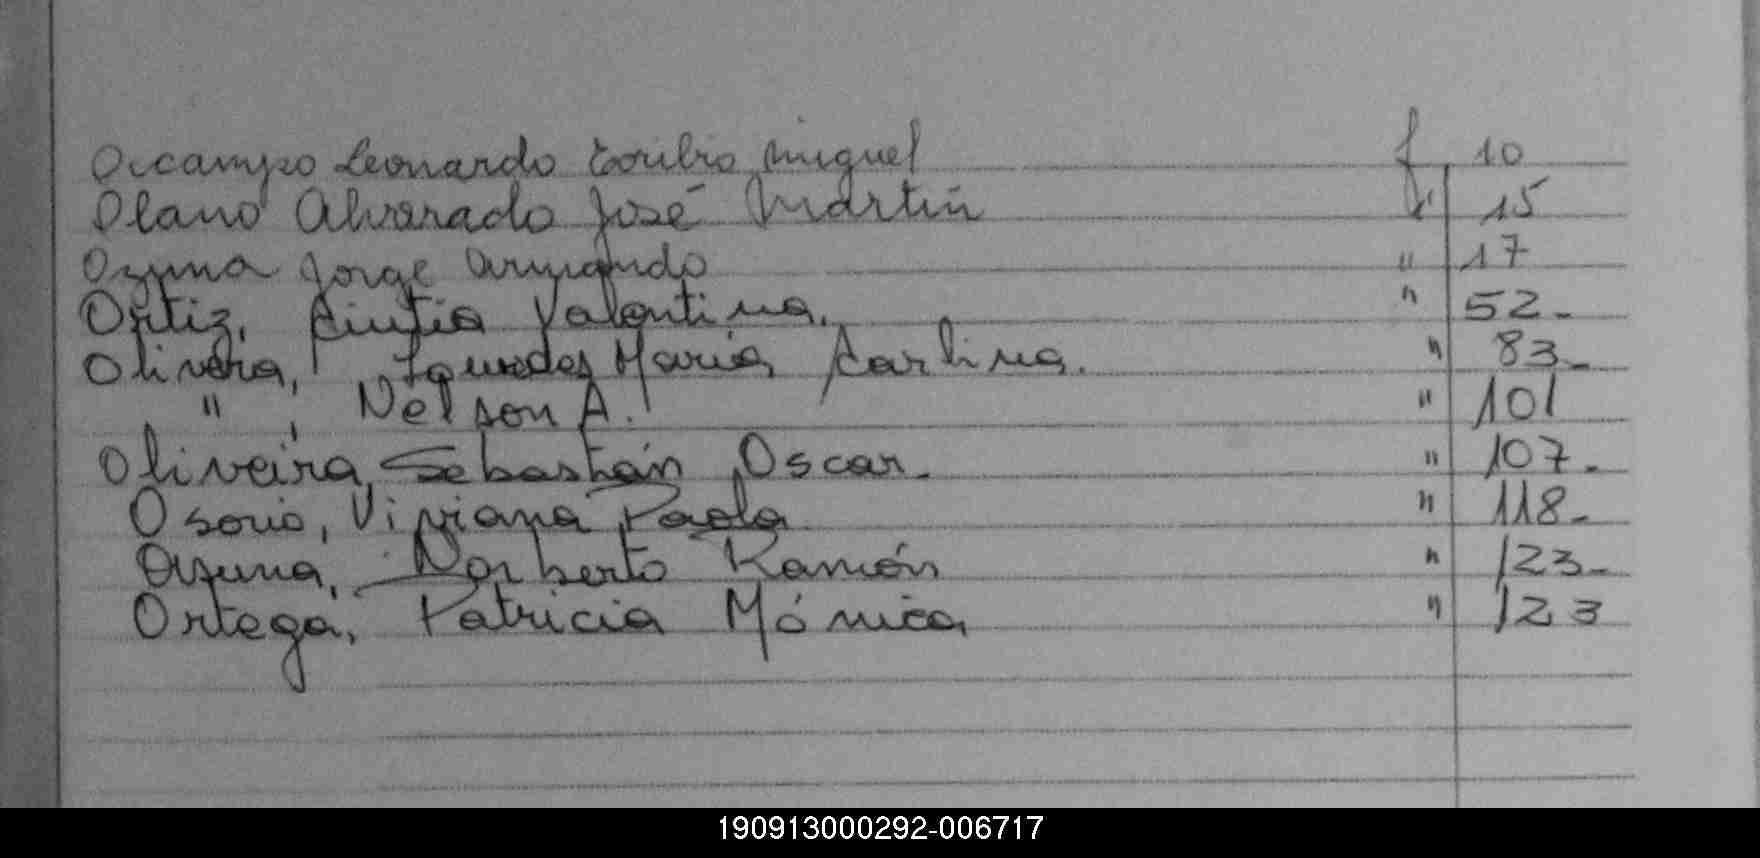 Ocampo Leonardo Toribio Miguel f 10
Olano Alvarado José Martin f 15
Ozuna Jorge Armando " 17
Ortiz, Cintia Valentina. " 52-
Olivera, Lourdes Maria Carlina. " 83-
" , Nelson A. " 101
Oliveira, Sebastián Oscar. " 107-
Osorio, Viviana Paola " 118-
Ozuna, Norberto Ramón " 123-
Ortega, Patricia Mónica " 123
190913000292-006717